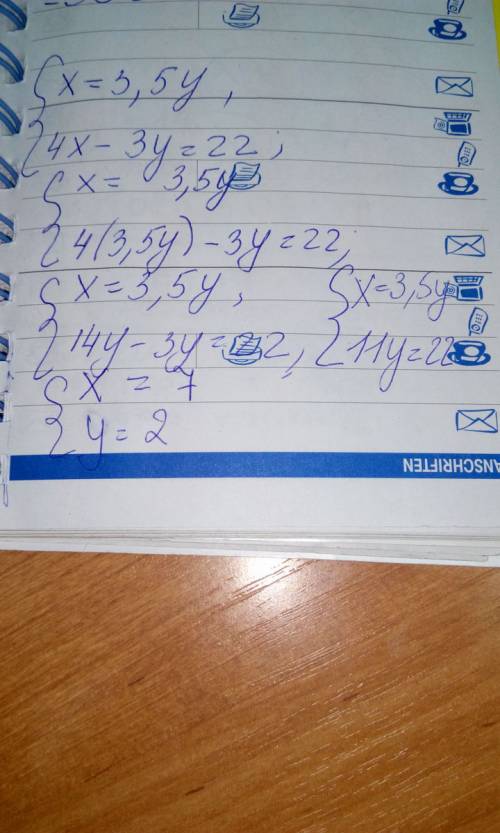 { x = 3,5y,
4x - 3y = 22;
{ x = 3,5y
4(3,5y) - 3y = 22;
{ x = 3,5y, { x = 3,5y
14y - 3y = 22, 11y = 22
{ x = 7
y = 2
ANSCHRIFTEN